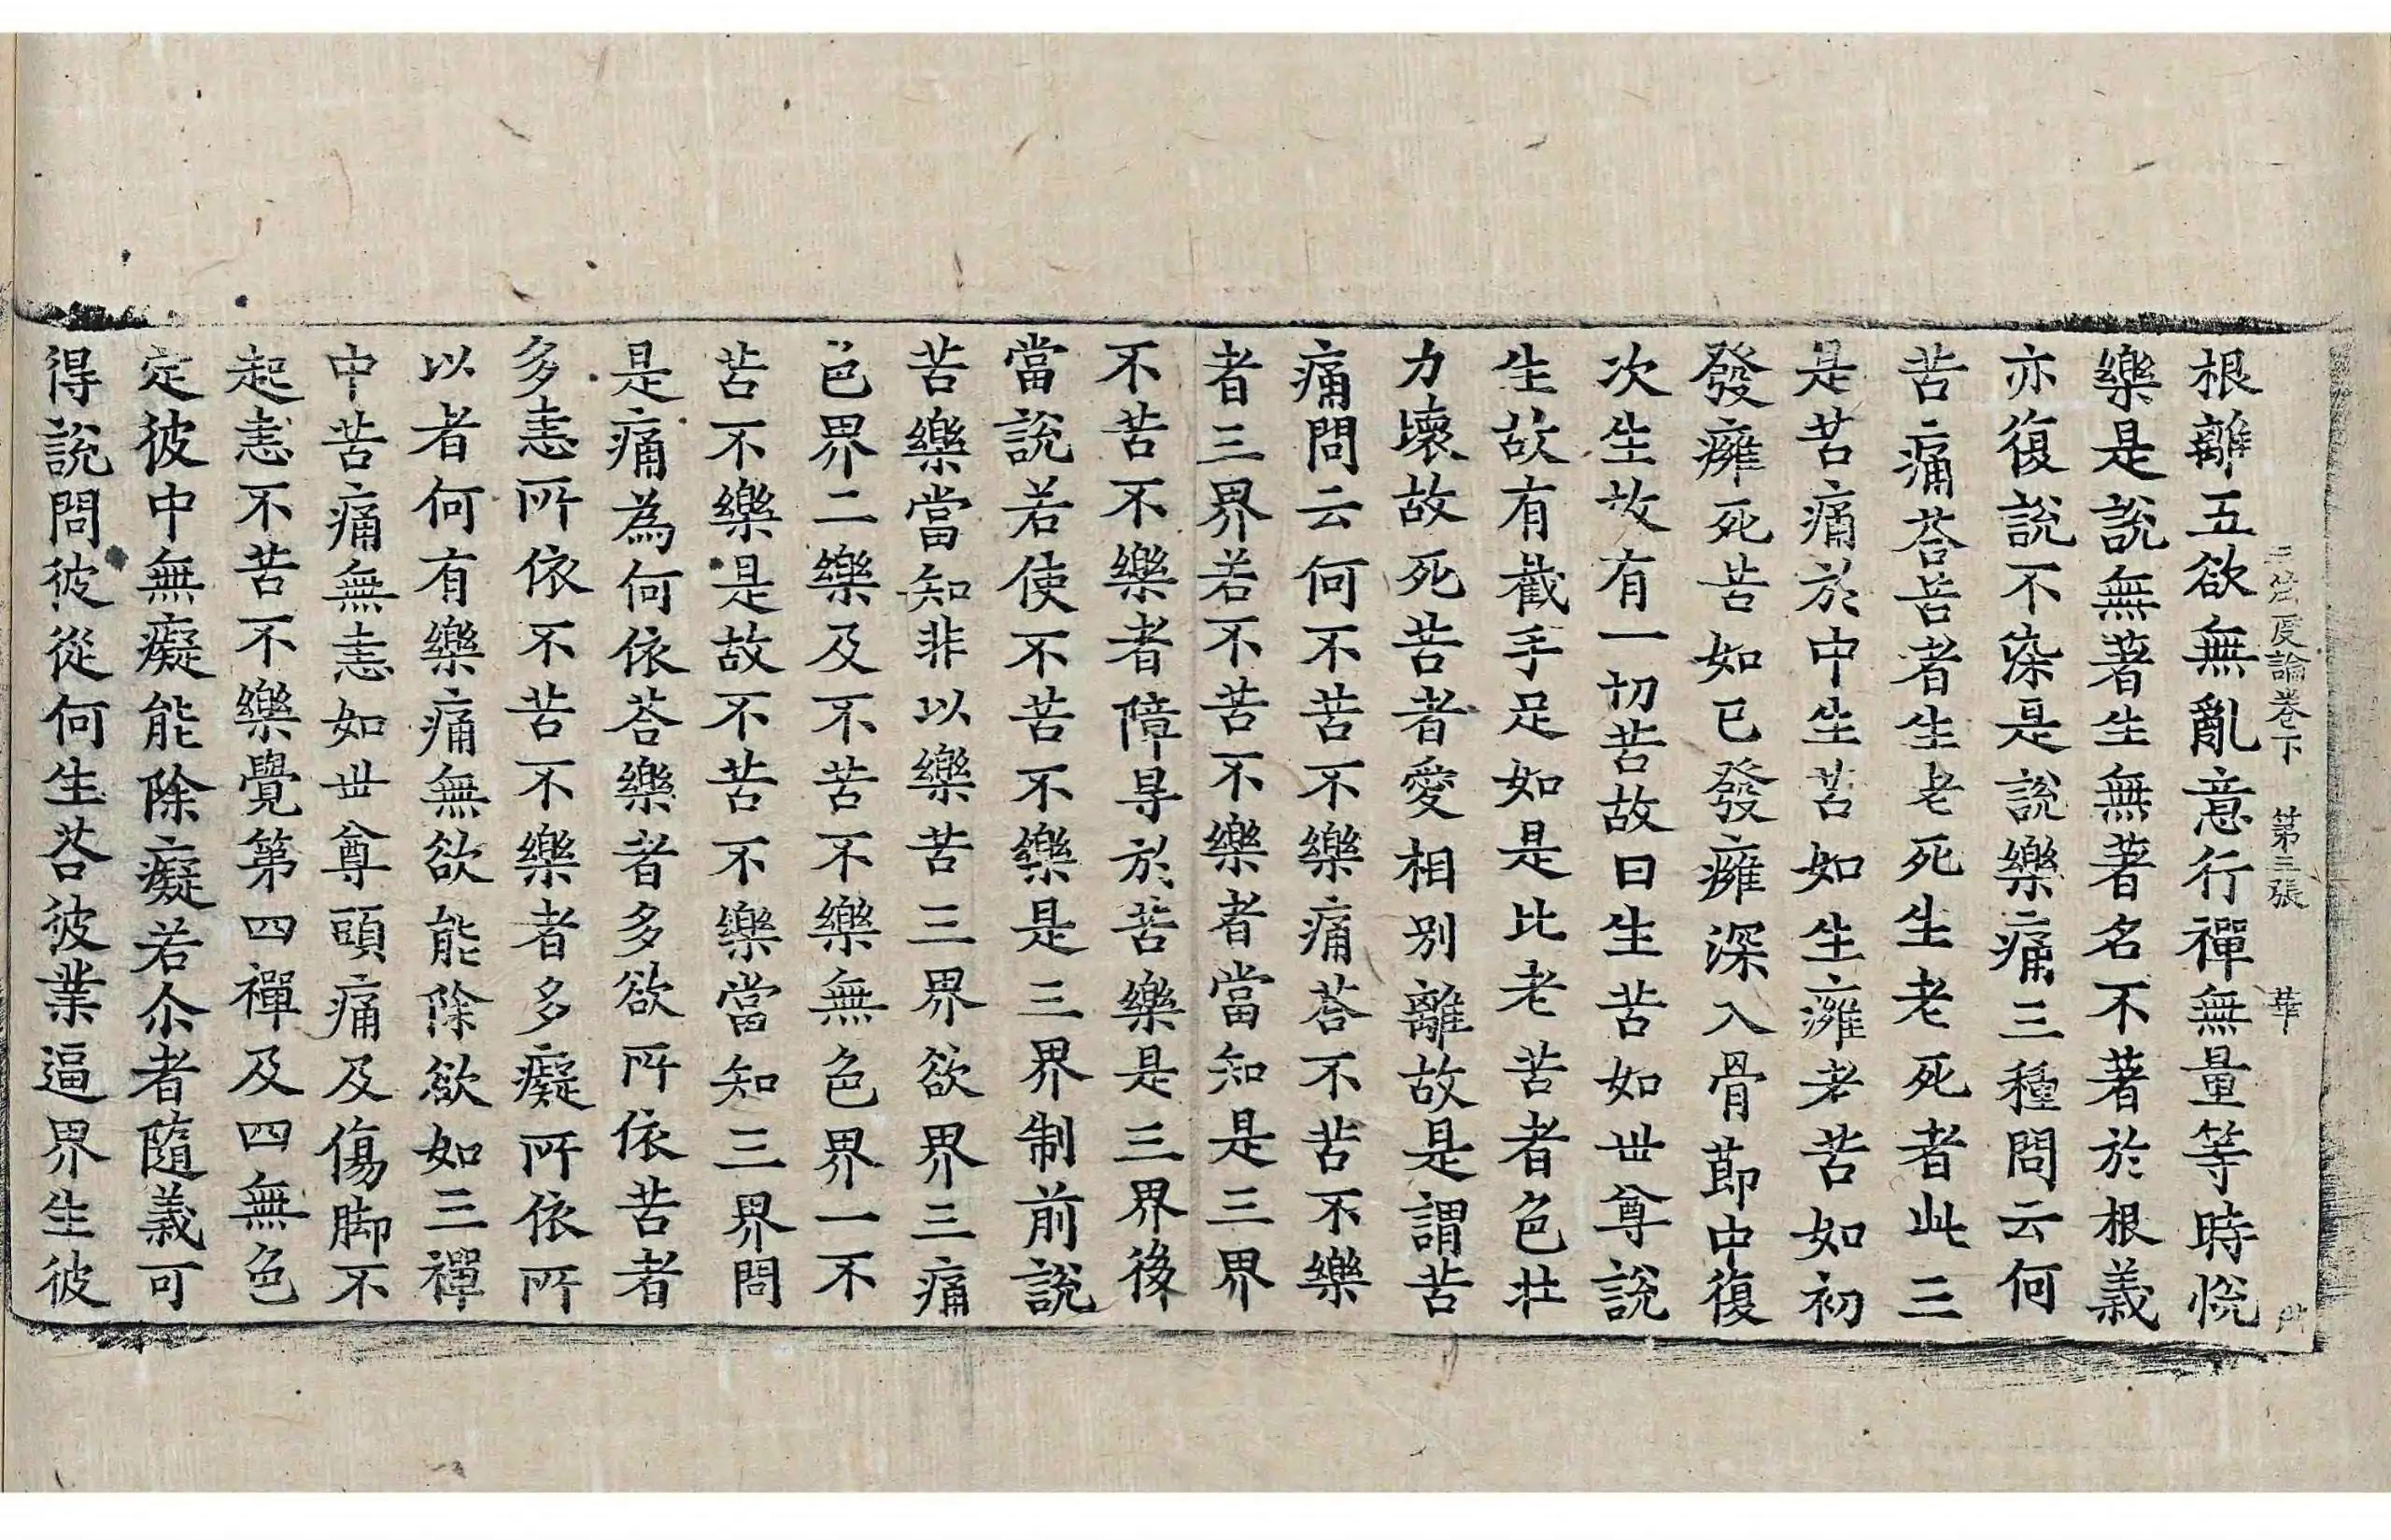 三法度論卷下 第三張 華
根離五欲無亂意行禪無量等時恱
樂是說無著生無著名不著於根義
亦復說不染是說樂痛三種問云何
苦痛荅苦者生老死生老死者此三
是苦痛於中生苦如生癰老苦如初
發癰死苦如已發癰深入骨莭中復
次生故有一切苦故曰生苦如丗尊說
生故有截手足如是比老苦者色壯
力壞故死苦者愛相別離故是謂苦
痛問云何不苦不樂痛荅不苦不樂
者三界若不苦不樂者當知是三界
不苦不樂者障㝵於苦樂是三界後
當說若使不苦不樂是三界制前說
苦樂當知非以樂苦三界欲界三痛
色界二樂及不苦不樂無色界一不
苦不樂是故不苦不樂當知三界問
是痛為何依荅樂者多欲所依苦者
多恚所依不苦不樂者多癡所依所
以者何有樂痛無欲能除欲如三禪
中苦痛無恚如丗尊頭痛及傷脚不
起恚不苦不樂覺第四禪及四無色
定彼中無癡能除癡若尒者隨義可
得說問彼從何生荅彼業逼界生彼